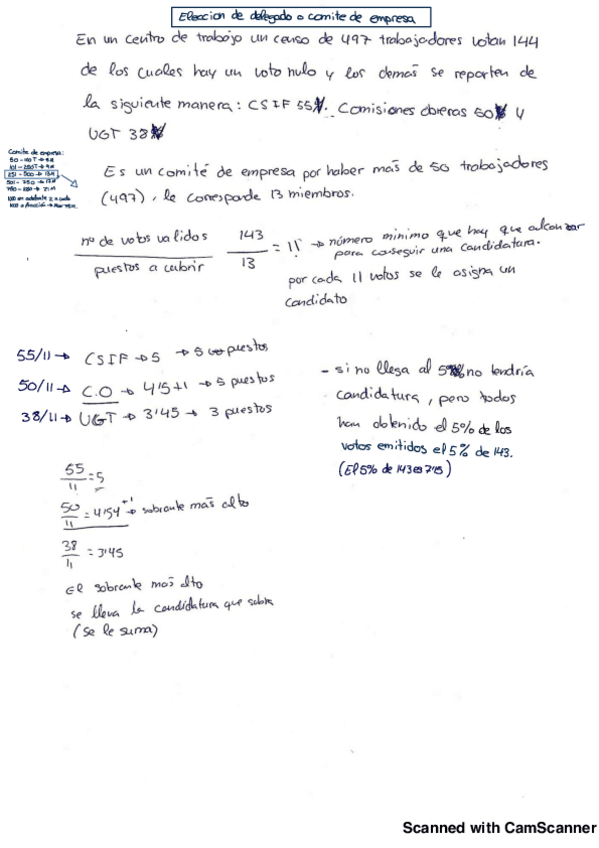 Eleccion de delegado o comite de empresa
En un centro de trabajo un censo de 497 trabajadores votan 144
de los cuales hay un voto nulo y los demás se reparten de
la siguiente manera: CSIF 55. Comisiones obreras 50 y
UGT 38
Comite de empresa:
101 - 250T → 9M
251 - 500 → 13M
501 - 750 → 17M
Es un comité de empresa por haber más de 50 trabajadores
(497), le corresponde 13 miembros.
nº de votos validos
puestos a cubrir
143
13
= 11 → número minimo que hay que alcanzar
para conseguir una candidatura.
por cada 11 votos se le asigna un
candidato
55/11 → CSIF → 5 → 5 puestos
50/11 → C.O → 4'5+1 → 5 puestos
38/11 → UGT → 3'45 → 3 puestos
- si no llega al 5% no tendría
candidatura, pero todos
han obtenido el 5% de los
votos emitidos el 5% de 143.
(El 5% de 143 es 7'15)
55/11 = 5
50/11 = 4'54 +1 → sobrante más alto
38/11 = 3'45
El sobrante más alto
se lleva la candidatura que sobra
(se le suma)
Scanned with CamScanner